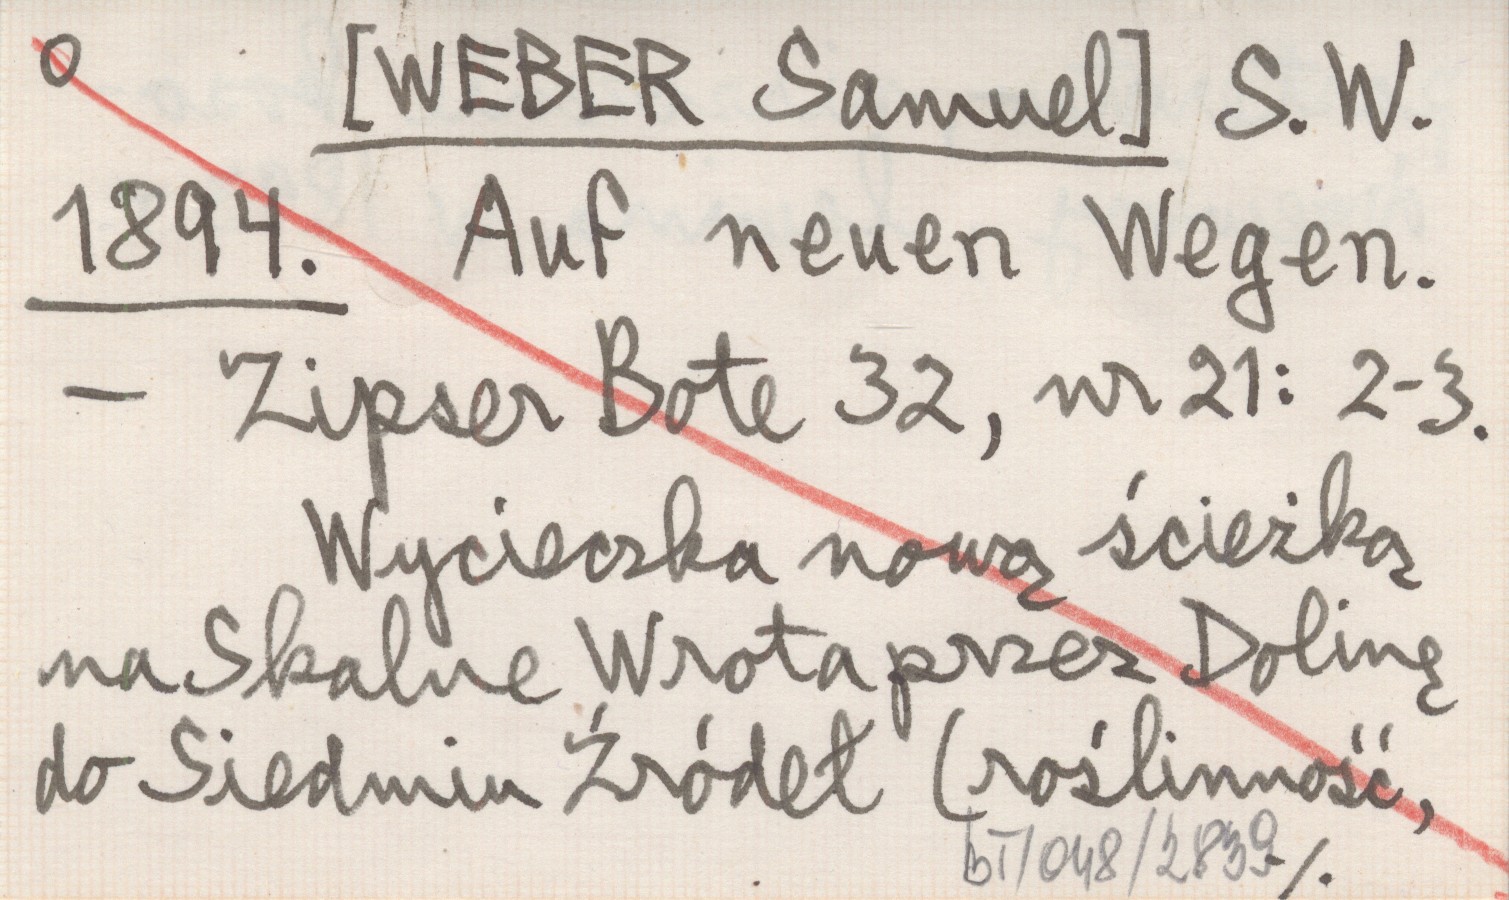 O [WEBER Samuel] S. W.
1894. Auf neuen Wegen.
— Zipser Bote 32, nr 21: 2-3.
Wycieczka nową ścieżką
na Skalne Wrota przez Dolinę
do Siedmiu Źródeł (roślinność,
bT/048/2839 ./.